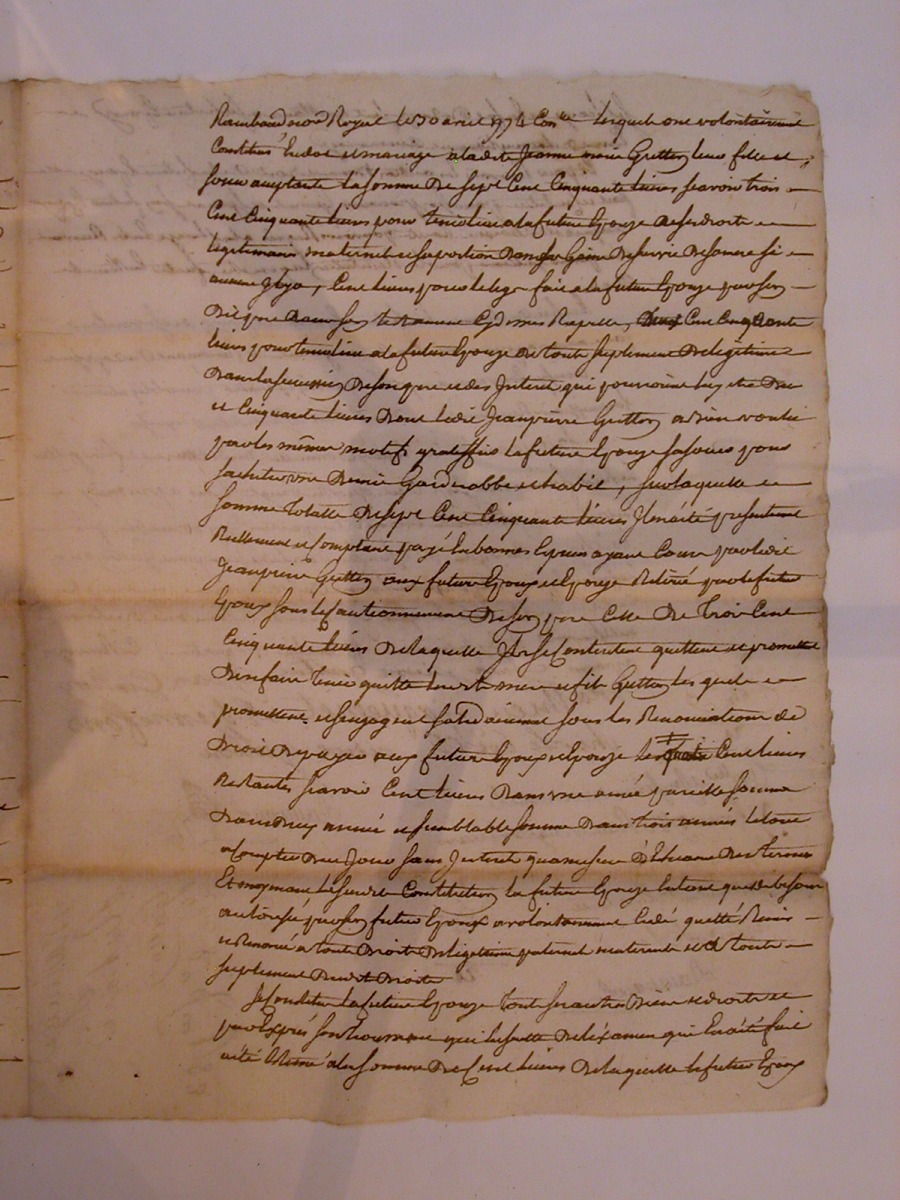 Rambaud notre Royal le 30 avril 1774 Con^lle lesquels ont volontairement
Constitué En dot et mariage a ladite Jeanne marie Gretton leur fille et
soeur acceptante la somme De Sept Cent Cinquante livres scavoir trois
Cent Cinquante livres pour tenir lieu a la future Epouze de ses droits
legitimaires maternels et sa portion Dans les Gains De survie De sa mere si
aucune y a, Cent livres pour le legs fait a la future Epouze par son
Dit pere Dans son testament Cy Dessus Rapellé, Deux Cent Cinquante
livres pour tenir lieu a la future Epouze de tout suplement De légitime
Dans la succession De son pere et des Interets qui pourroient luy etre Dus
et Cinquante livres Dont ledit Jean pierre Gretton a Bien voulu
par les mêmes motifs gratiffier la future Epouze sa soeur pour
sachetter une Demie Garderobbe et habit, sur laquelle
somme totalle De Sept Cent Cinquante livres Il en a été présentement
Réellement et Comptant payé En bonnes Especes ayant Cours par ledit
Jean pierre Gretton aux future Epoux et Epouze Retiré par le futur
Epoux sous le Cautionnement De son pere Celle De trois Cent
Cinquante livres De laquelle Ils se Contentent quittent et promettent
Den faire tenir quitte lesdits mere et fils Gretton lesquels
promettent et s'engagent solidairement sous les Renonciations de
Droit De payer aux future Epoux et Epouze les quatre Cent livres
Restantes scavoir Cent livres Dans une année pareille somme
Dans Deux années et semblable somme Dans trois années le tout
a Compter De ce Jour sans Interet qu'a mesure D'Echeance Des termes
Et moyenant la susdite Constitution la future Epouze Entant que de besoin
autorisée par son futur Epoux a volontairement Cédé quitté Remis
et Renoncé a tous Droits De légitime paternel maternels et a tout
suplement Desdits Droits
Se Constitue la future Epouze tous ses autres Biens et droits et
par Exprés son trousseau qui Ensuitte De l'éxamen qui En a été fait
a été Estimé a la somme De Cent livres De laquelle le futur Epoux